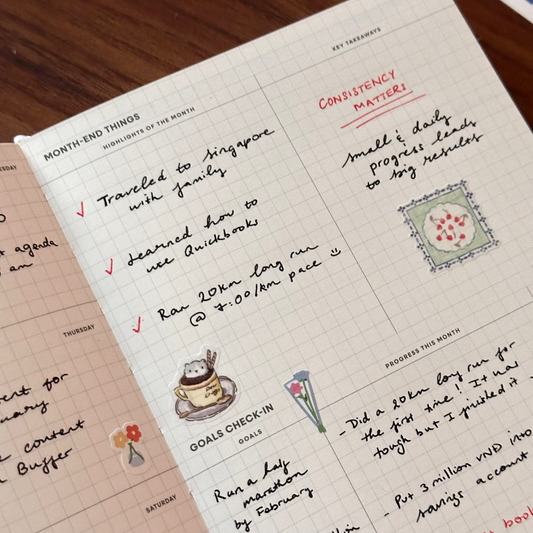 ESDAY
agenda
am
THURSDAY
for
content
Buffer
SATURDAY
MONTH-END THINGS
HIGHLIGHTS OF THE MONTH
Traveled to Singapore
with family
Learned how to
use Quickbooks
Ran 20km long run
@ 7:00/km pace
KEY TAKEAWAYS
CONSISTENCY
MATTERS
small & daily
progress leads
to big results
GOALS CHECK-IN
GOALS
Run a half
marathon
by February
PROGRESS THIS MONTH
- Did a 20km long run for
the first time! It was
tough but I
it
- Put 3 million VND into
savings account